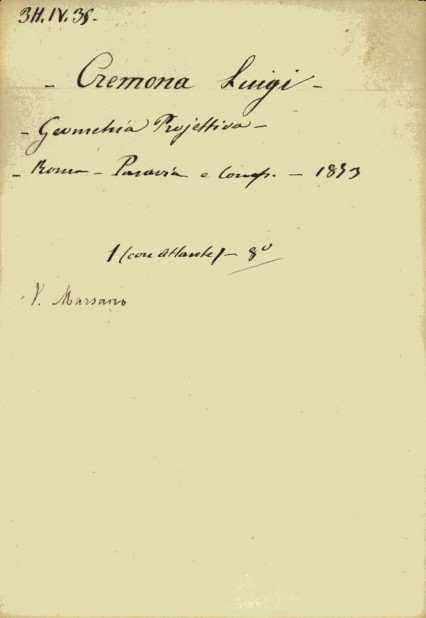 3H.IV.38.
- Cremona Luigi -
- Geometria Projettiva -
- Roma - Paravia e Comp. - 1873
1 (con atlante) - 8º
V. Marsano